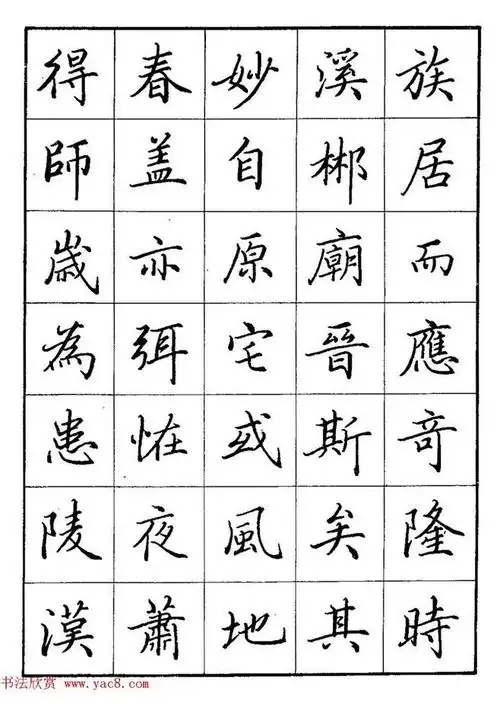 族居而應竒隆時
溪郴廟晉斯矣其
妙自原宅或風地
春盖亦弭恠夜蕭
得師歲為患陵漢
书法欣赏 www.yac8.com